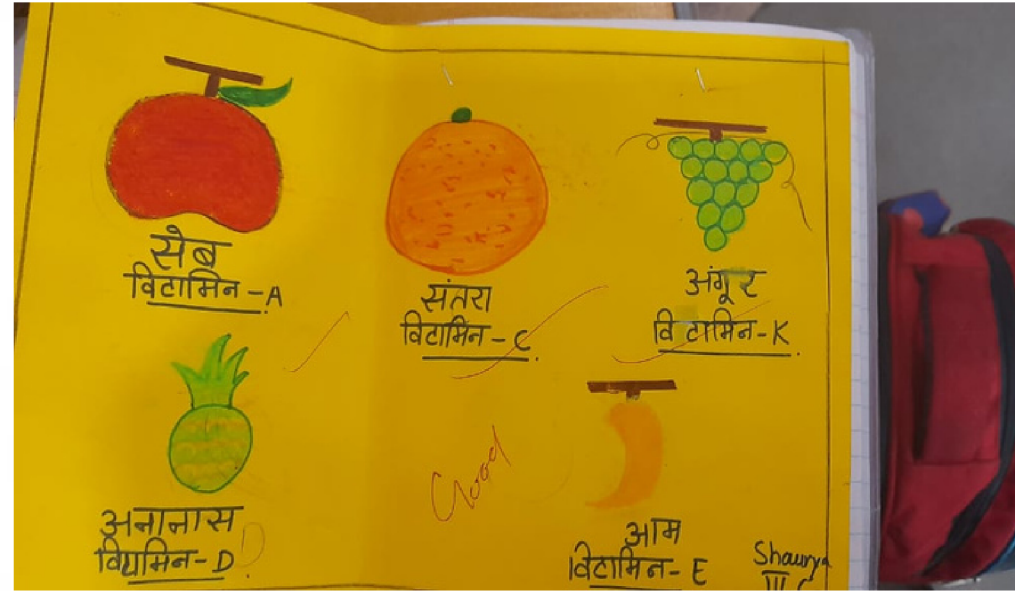 सेब
विटामिन-A
संतरा
विटामिन-C.
अंगूर
विटामिन-K.
अनानास
विटामिन-D
Good
आम
विटामिन-E
Shaurya
III C